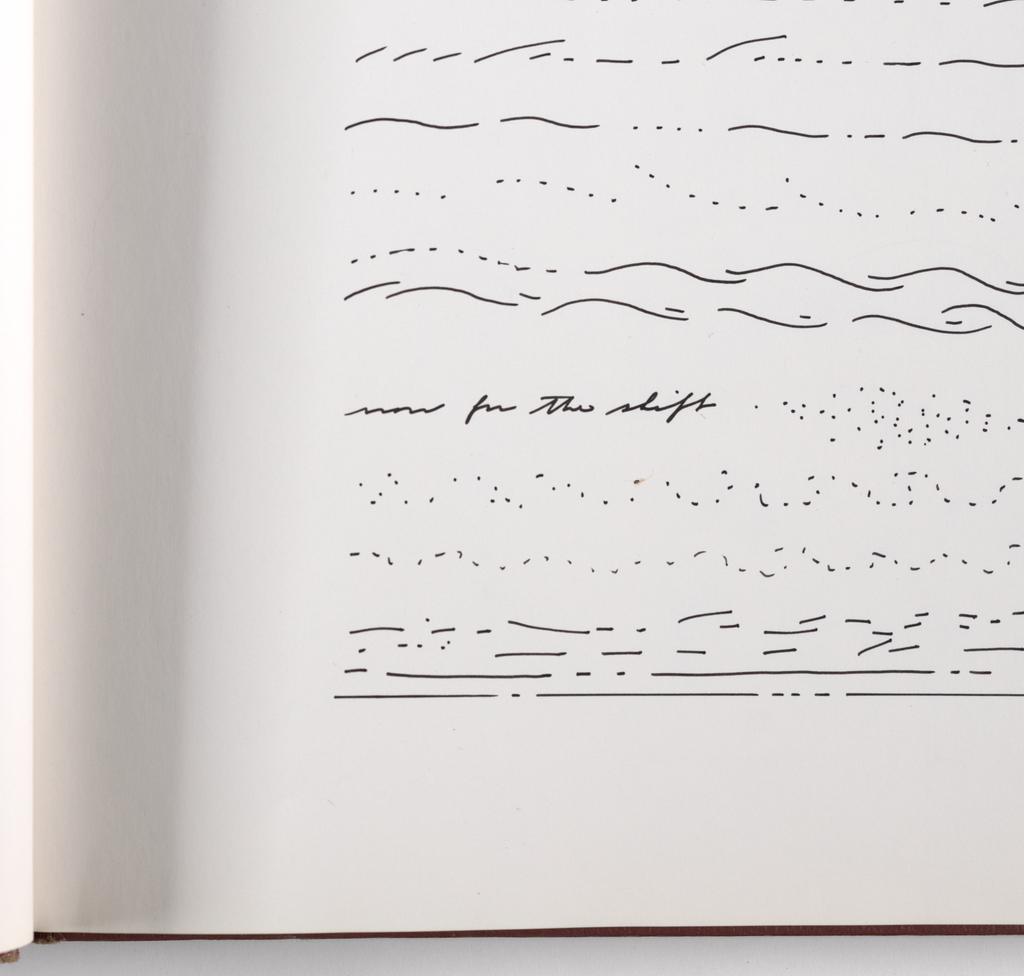 now for the shift